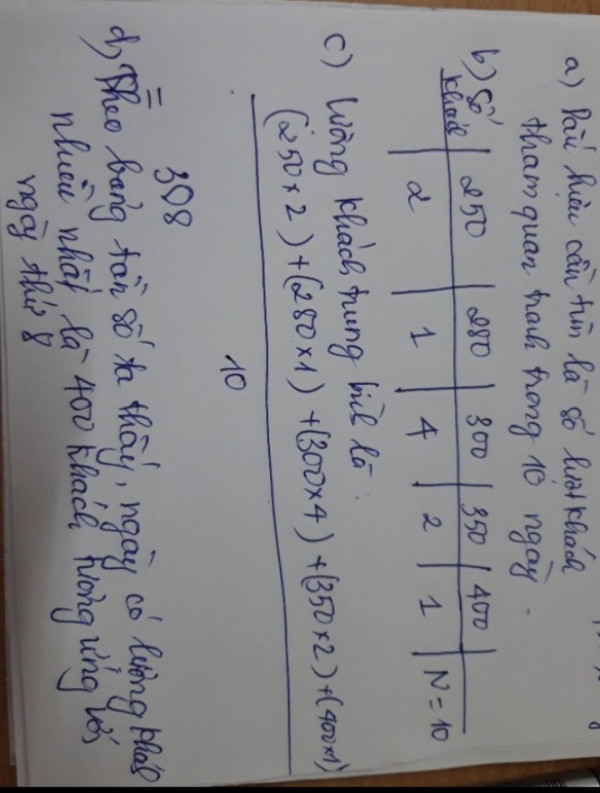 a) Dấu hiệu cần tìm là số lượt khách
tham quan tranh trong 10 ngày.
b) Số khách | 250 | 280 | 300 | 350 | 400 |
| 2 | 1 | 4 | 2 | 1 | N = 10
c) Lượng khách trung bình là :
(250×2) + (280×1) + (300×4) + (350×2) + (400×1)
10
= 308
d) Theo bảng tần số ta thấy, ngày có lượng khách
nhiều nhất là 400 khách tương ứng với
ngày thứ 8